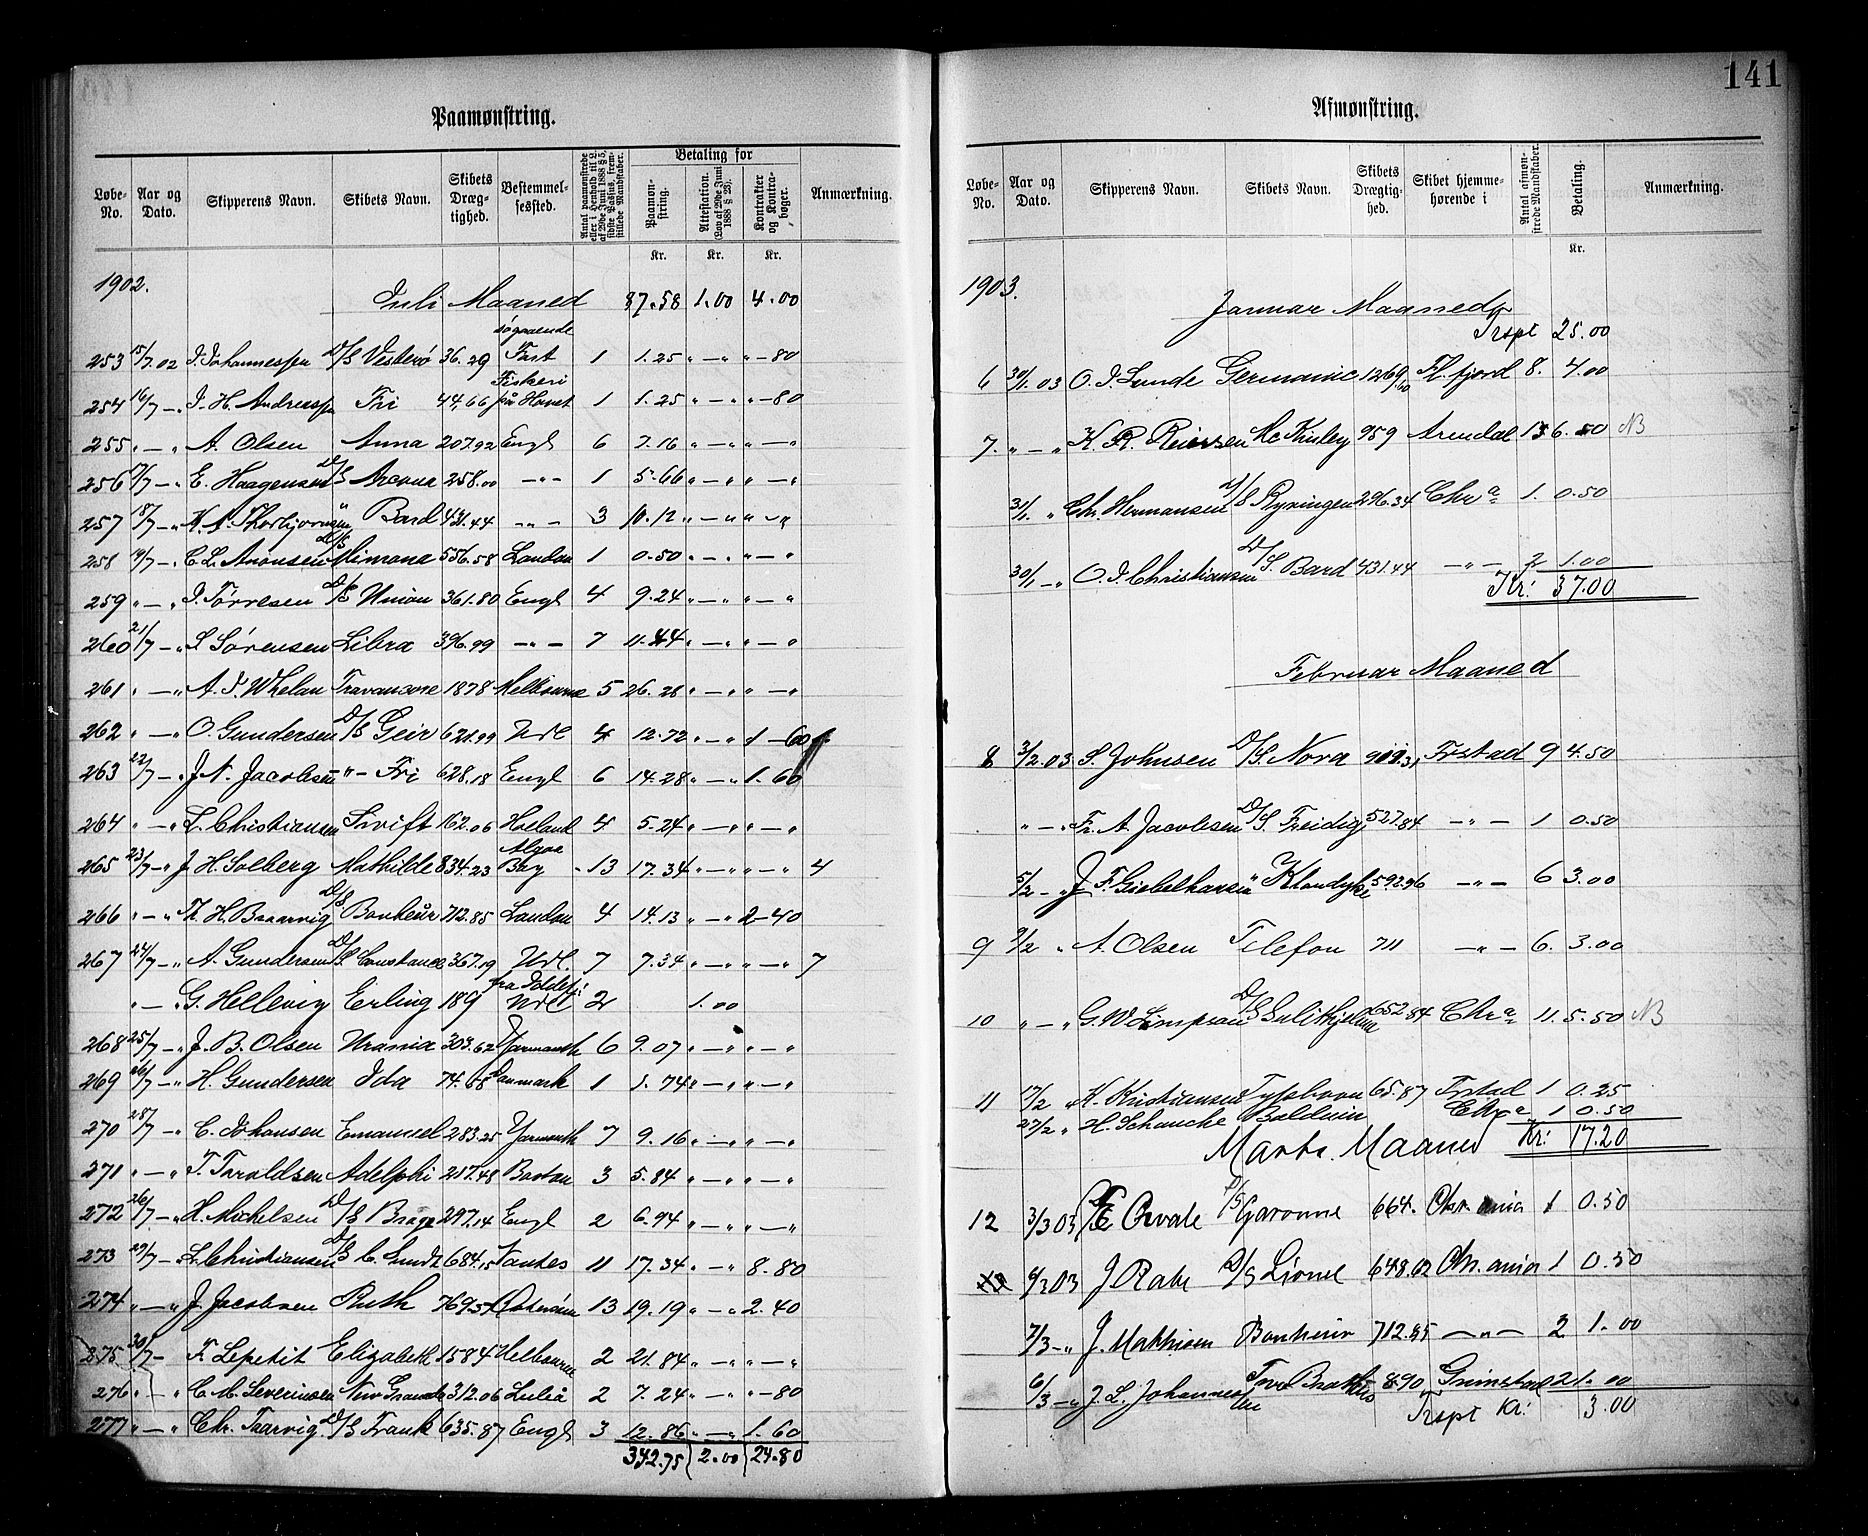 141
Paamønstring.
Løbe-No. Aar og Dato. Skipperens Navn. Skibets Navn. Skibets Drægtighed. Bestemmelsessted. Antal paamønstrede eller i Henhold til L. af 29de Juni 1888 § 5, sidste Passus, fremstillede Mandskaber. Betaling for Paamønstring. Attestation. (Lov af 29de Juni 1888 § 23). Kontrakter og Kontrabøger. Anmærkning.
Kr. Kr. Kr.
1902.
Juli Maaned 87.58 1.00 4.00
253 15/7 02 J. Johannessen D/S Vesterø 36.29 søgaaende Fart 1 1.25 " — " " — 80
254 16/7 — " J. H. Andreassen Fri 44,66 Fiskeri på Havet 1 1.25 " — " " — 80
255 " — " A. Olsen Anna 207.92 Engl 6 7.16 " — " " — "
256 17/7 — " E. Haagensen D/S Arcona 258.00 — " — 1 5.66 " — " " — "
257 18/7 — " N. A. Thorbjørnsen " Bard 431.44 — " — 3 10.12 " — " " — "
258 19/7 — " C. L. Aronsen D/S Mimona 556.58 London 1 0.50 " — " " — "
259 " — " J. Tørresen D/S Union 361.80 Engl 4 9.24 " — " " — "
260 21/7 — " S Sørensen Libra 396.99 — " — 7 11.44 " — " " — "
261 " — " A. J. Whelan Travancore 1878 Melbourne 5 26.28 " — " " — "
262 " — " O. Gundersen D/S Geir 621.99 Udl 4 12.72 " — " 1 — 60
263 22/7 — " J. N. Jacobsen " — Fri 628.18 Engl 6 14.28 " — " 1. 60
264 " — " L. Christiansen Svift 162.06 Holand 4 5.24 " — " " — "
265 23/7 — " J H. Solberg Mathilde 834.23 Algoa Bay 13 17.34 " — " " — " 4
266 " — " Th. H. Baaarvig D/S Bonheur 712.85 London 4 14.13 " — " 2 — 40
267 24/7 — " A. Gundersen D/S Constance 367.19 Udl. 7 7.34 " — " " — " 7
" — " G. Hellevig Erling 189 Udl 2 1.00
268 25/7 — " J. B. Olsen Urania 303.62 Yarmouth 6 9.07 " — " " — "
269 26/7 — " H. Gundersen Ida 74.68 Danmark 1 1.74 " — " " — "
270 28/7 — " C. Johansen Emanuel 283.25 Yarmouth 7 9.16 " — " " — "
271 " — " T. Taraldsen Adelphi 217.48 Boston 3 5.84 " — " " — "
272 26/7 — " H. Michelsen D/S Brage 297.14 Engl 2 6.94 " — " " — "
273 29/7 — " L. Christiansen D/S C. Sundt 684.15 Nantes 11 17.34 " — " 8.80
274 " — " J. Jacobsen Ruth 769.57 13 19.19 " — " 2.40
275 30/7 — F. Lepetit Elizabeth 1584 Melbourne 2 21.84 " — " " — "
276 " — " C. M. Severinsen New Granada 312.06 Luleå 2 7.24 " — " " — 80
277 " — " Chr. Taarvig D/S Frank 635.87 Engl 3 12.86 " — " 1.60
342.75 2.00 24.80
Afmønstring.
Løbe-No. Aar og Dato. Skipperens Navn. Skibets Navn. Skibets Drægtighed. Skibet hjemmehørende i Antal afmønstrede Mandskaber. Betaling. Anmærkning.
Kr.
1903.
Januar Maaned
Trspt 25.00
6 30/1. 03 O. J. Lunde Germanic 1269/00 Fl. fjord 8. 4.00
7. " — " K. R. Reiersen Mc Kinley 959 Arendal 13 6.50 NB
31/1. " Chr. Hermansen D/S Ryvingen 296.34 Chra 1. 0.50
30/1 — " O. J. Christiansen D/S. Bard 431.44 — " — 2 1.00
Kr: 37.00
Februar Maaned
8 3/2. 03 S. Johnsen D/S. Nora 901.31 Frstad 9 4.50
" — " Fr. A. Jacobsen D/S. Freidig 527.84 — " — 1 0.50
5/2 — " J F. Giebelhausen " Klondyke 592.96 — " — 6 3.00
9 9/2 " A. Olsen Telefon 711 — " — 6. 3.00
10 " — " G. W. Simpson D/S Sulithjelma 652.84 Chra 11. 5.50 NB
11 17/2 " K. Kristiansen Typsboen 65.87 Frstad 1 0.25
27/2 " H. Schancke Baldwin Chra 1 0.50
Kr: 17.20
Marts. Maaned
12 3/3 03 E Orvale D/S Garonne 664. Chr.ania 1 0.50
13 6/3 03 J. Rabe D/S Lionel 648.02 Chr.ania 1 0.50
7/3 — " J. Mathisen Bonheur 712.85 — " — 2 1.00
6/3 — " J. L. Johannesen Tvo Brothers 890 Grimstad 2 1.00
Trspt Kr: 3.00